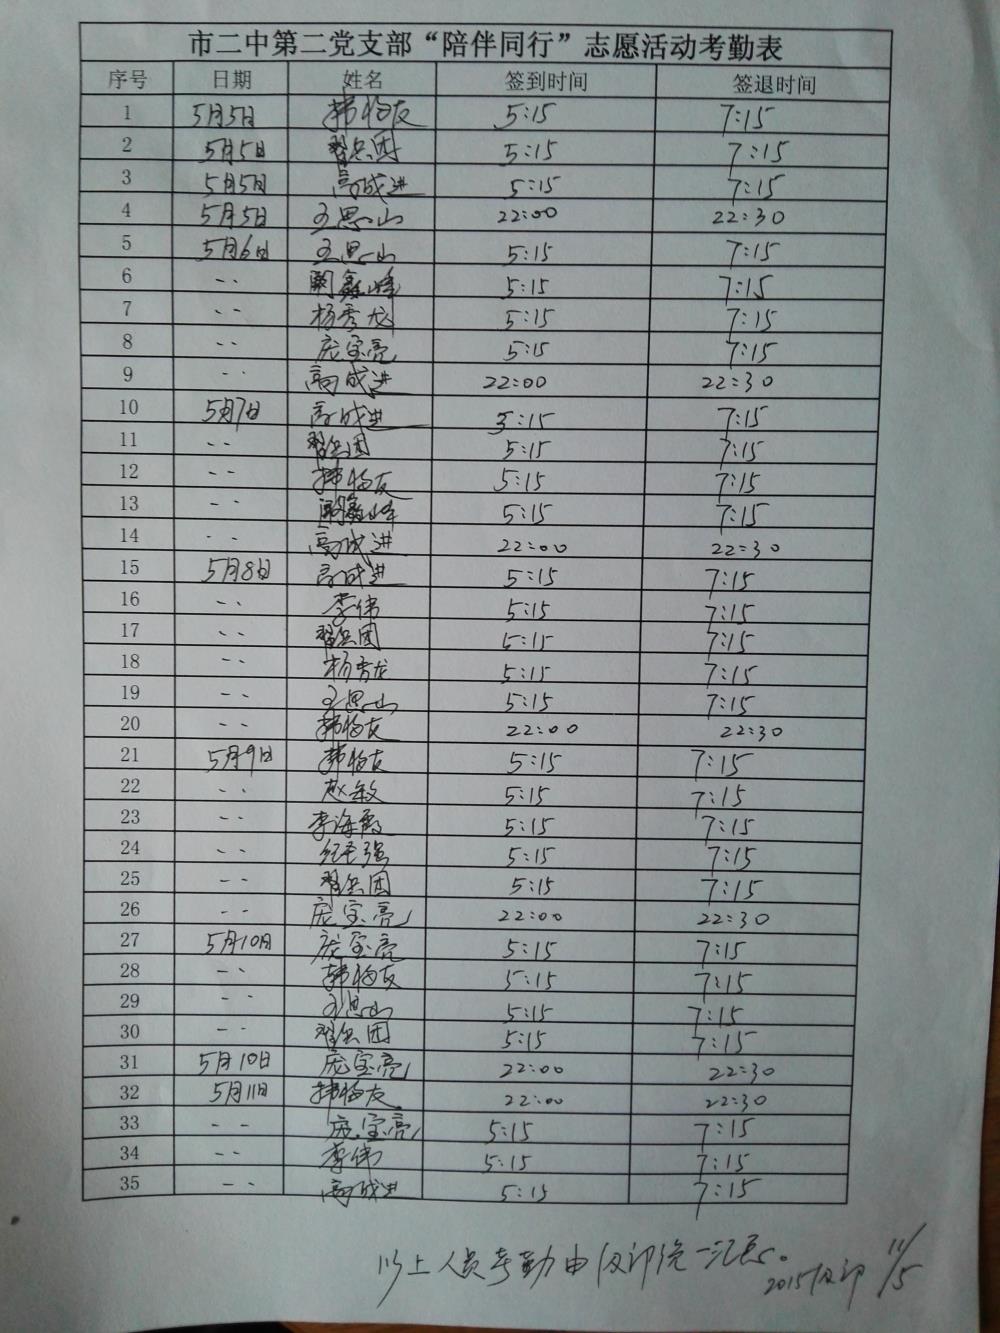 市二中第二党支部“陪伴同行”志愿活动考勤表
序号 日期 姓名 签到时间 签退时间
1 5月5日 韩怡友 5:15 7:15
2 5月5日 翟兵团 5:15 7:15
3 5月5日 高成进 5:15 7:15
4 5月5日 王思山 22:00 22:30
5 5月6日 王思山 5:15 7:15
6 -- 阚鑫峰 5:15 7:15
7 -- 杨秀龙 5:15 7:15
8 -- 庞宝亮 5:15 7:15
9 -- 高成进 22:00 22:30
10 5月7日 高成进 5:15 7:15
11 -- 翟兵团 5:15 7:15
12 -- 韩怡友 5:15 7:15
13 -- 阚鑫峰 5:15 7:15
14 -- 高成进 22:00 22:30
15 5月8日 高成进 5:15 7:15
16 -- 李伟 5:15 7:15
17 -- 翟兵团 5:15 7:15
18 -- 杨秀龙 5:15 7:15
19 -- 王思山 5:15 7:15
20 -- 韩怡友 22:00 22:30
21 5月9日 韩怡友 5:15 7:15
22 -- 赵敏 5:15 7:15
23 -- 李海霞 5:15 7:15
24 -- 经圣强 5:15 7:15
25 -- 翟兵团 5:15 7:15
26 -- 庞宝亮 22:00 22:30
27 5月10日 庞宝亮 5:15 7:15
28 -- 韩怡友 5:15 7:15
29 -- 王思山 5:15 7:15
30 -- 翟兵团 5:15 7:15
31 5月10日 庞宝亮 22:00 22:30
32 5月11日 韩怡友 22:00 22:30
33 -- 庞宝亮 5:15 7:15
34 -- 李伟 5:15 7:15
35 -- 高成进 5:15 7:15
以上人员考勤由及印统一汇总。
2015 及印 11/5